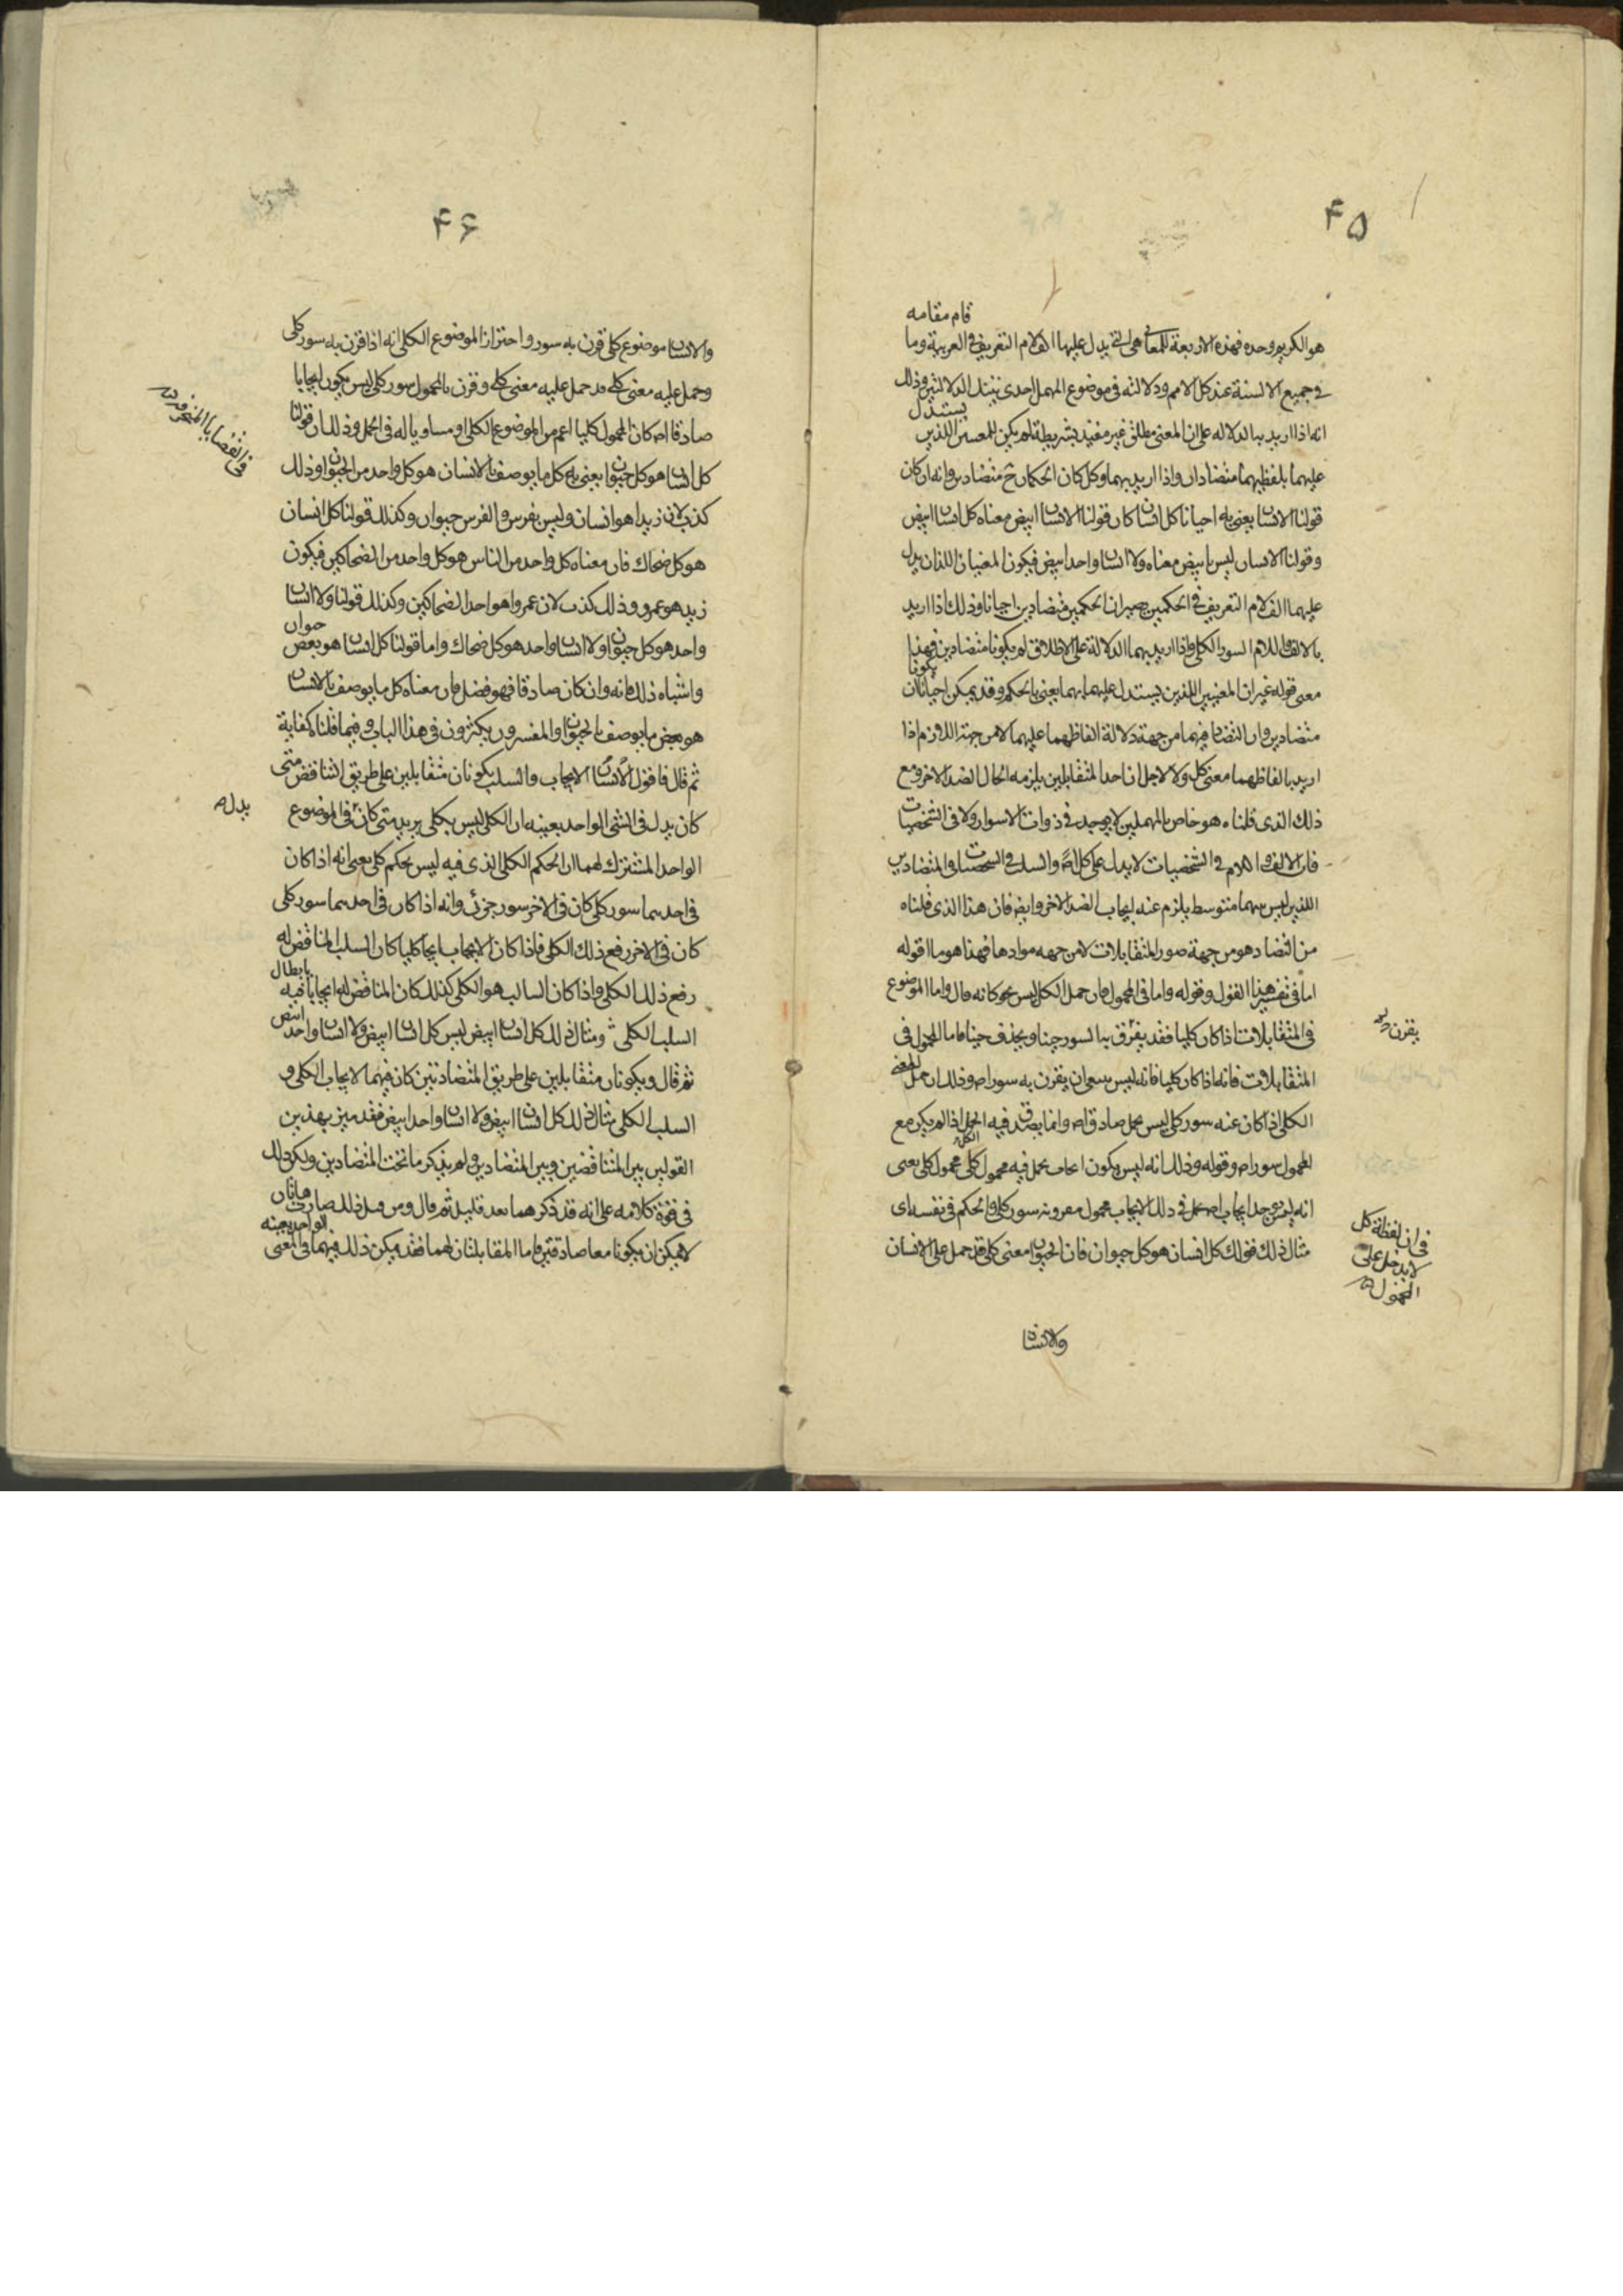 ۴۵
قام مقامه
هو الكريم وحده فهذه الاربعة المعانى هى التى يدل عليها الف لام التعريف فى العربية وما
فى جميع الالسنة عند كل الامم ودلالته فى موضوع المهمل احدى تينك الدلالتين وذلك
انه اذا اريد به الدلاله على ان المعنى مطلق غير مقيد بشريطة لم يكن للمعنيين اللذين
يستدل
عليهما بلفظيهما متضادان واذا اريد بهما وكل كان الحكمان ح متضادين وانه ان كان
قولنا الانسان يعنى به احيانا كل انسان كان قولنا الانسان ابيض معناه كل انسان ابيض
وقولنا الانسان ليس بابيض معناه ولا انسان واحد ابيض فيكون المعنيان اللذان يدل
عليهما الف لام التعريف فى الحكمين يصيران الحكمين متضادين احيانا وذلك اذا اريد
بالالف واللام السور الكلى واذا اريد بهما الدلالة على الاطلاق لم يكونا متضادين فهذا
معنى قوله غير ان المعنيين اللذين يستدل عليهما بهما يعنى بالحكم وقد يمكن احيانا ان
يكونا
متضادين فان التضاد فيهما من جهة دلالة الفاظهما عليهما لا من جهة اللازم اذا
اريد بالفاظهما معنى كل ولا لاجل ان احد المتقابلين يلزمه الحال الضد الاخر ومع
ذلك الذى قلناه هو خاص بالمهملين لا يوجد فى ذوات الاسوار ولا فى الشخصيات
فان الالف واللام فى الشخصيات لا يدل على كل اصلا والسلب فى الشخصيات والمتضادين
اللذين ليس بينهما متوسط يلزم عنه ايجاب الضد الاخر وايضا فان هذا الذى قلناه
من التضاد هو من جهة صور المتقابلات لا من جهه موادها فهذا هو ما اقوله
اما فى تفسير هذا القول وقوله واما فى المحمول فان حمل الكلى ليس بحو كانه قال واما الموضوع
فى المتقابلات اذا كان كليا فقد يفرق به السور حينا ويحذف حينا فاما المحمول فى
يقرن
المتقابلات فانه اذا كان كليا فانه ليس ان يقرن به سور اصلا وذلك ان حمل
الكلى اذا كان عنه سور كلى ليس بحمل صادق اصلا وانما يصدق فيه الحمل اذا لم يكن مع
المحمول سور اصلا وقوله وذلك انه ليس يكون ايجاب يحمل فيه محمول كلى محمول كلى يعنى
انه ليس يوجد ايجاب اصلا يحمل فى ذلك الايجاب محمول مقرون به سور كلى والحكم فى نفسه اى
مثال ذلك قولك كل انسان هو كل حيوان فان الحيوان معنى كلى قد حمل على الانسان
فى ان لفظة كل
لا يدخل على
المحمول
والانسان
۴۶
والانسان موضوع كلى قرن به سور واحترازا لموضوع الكلى انه اذا قرن به سور كلى
وحمل عليه معنى كلى قد حمل عليه معنى كلى وقرن بالمحمول سور كلى ليس يكون ايجابا
صادقا اصلا كان المحمول كليا اعم من الموضوع الكلى او مساويا له فى الحمل وذلك ان قولنا
فى القضايا المنحرفة
كل انسان هو كل حيوان يعنى به كل ما يوصف بالانسان هو كل واحد من الحيوان وذلك
كذب لان زيدا هو انسان وليس بفرس والفرس حيوان وكذلك قولنا كل انسان
هو كل ضحاك فان معناه كل واحد من الناس هو كل واحد من الضحاكين فيكون
زيد هو عمرو وذلك كذب لان عمروا هو احد الضحاكين وكذلك قولنا ولا انسان
واحد هو كل حيوان ولا انسان واحد هو كل ضحاك واما قولنا كل انسان هو بعض
حيوان
واشباه ذلك فانه وان كان صادقا فهو فضل فان معناه كل ما يوصف بالانسان
هو بعض ما يوصف بالحيوان والمفسرون يكثرون فى هذا الباب وفيما قلناه كفاية
ثم قال فاقول ان الايجاب والسلب يكونان متقابلين على طريق التناقض متى
كان يدل فى الشئ الواحد بعينه ان الكلى ليس بكلى يريد متى كان فى الموضوع
يدل
الواحد المشترك لهما ان الحكم الكلى الذى فيه ليس بحكم كلى يعنى انه اذا كان
فى احدهما سور كلى كان فى الاخر سور جزئى وانه اذا كان فى احدهما سور كلى
كان فى الاخر رفع ذلك الكلى فاذا كان الايجاب ايجابا كليا كان السلب المناقض له
رفع ذلك الكلى واذا كان السالب هو الكلى كذلك كان المناقض له ايجابا فيه
بابطال
السلب الكلى ومثال ذلك كل انسان ابيض ليس كل انسان ابيض ولا انسان واحد
ابيض
ثم قال ويكونان متقابلين على طريق المتضادتين كان فيهما الايجاب الكلى و
السلب الكلى مثال ذلك كل انسان ابيض ولا انسان واحد ابيض فقد ميز بهذين
القولين بين المتناقضين وبين المتضادين ولم يذكر ما تحت المتضادين ولكن ذلك
فى قوة كلامه على انه قد ذكرهما بعد قليل ثم قال ومن قبل ذلك صارت هاتان
لا يمكن ان يكونا معا صادقتين فاما المقابلتان لهما فقد يمكن ذلك فيهما فى المعنى
الواحد بعينه